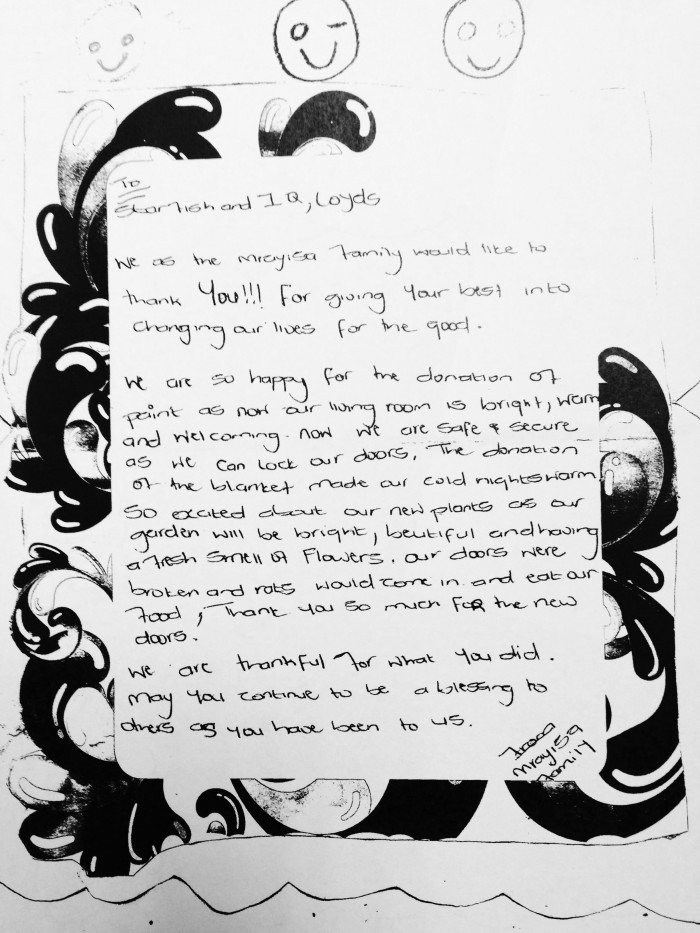 To
Starfish and IQ, Loyds
We as the Mrayisa Family would like to
thank You!!! For giving Your best into
Changing our lives for the good.
We are so happy for the donation of
paint as now our living room is bright, warm
and welcoming. now we are safe & secure
as we can lock our doors, The donation
of the blanket made our cold nights warm
So excited about our new plants as our
garden will be bright, beutiful and having
a fresh smell of Flowers. our doors were
broken and rats would come in and eat our
Food, Thank you so much FOR the new
doors.
We are thankful for what you did.
may you continue to be a blessing to
others as you have been to us.
From
Mrayisa
Family